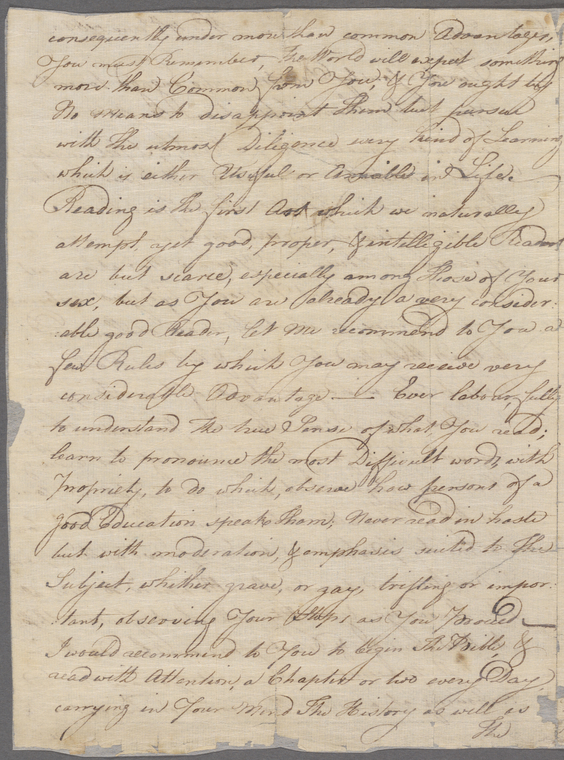 consequently under more than common Advantages,
You must Remember, The World will expect something
more than Common from You, & You ought by
No means to disappoint Them but pursue
with the utmost Diligence every kind of Learning
which is either Useful or in Life.
Reading is the first Art which we naturally
attempt, yet good, proper, & intelligible Readers
are but scarce, especially among Those of Your
sex, but as You are already a very consider-
able good Reader, let Me recommend to You a
few Rules by which You may receive very
considerable Advantage — Ever labour fully
to understand The true Sense of what You read;
learn to pronounce the most Difficult words with
Propriety, to do which, observe how persons of a
good Education speak Them, Never read in haste
but with moderation, & emphasis suited to The
Subject, whether grave, or gay, trifling or impor-
tant, observing Your Stops as You Proceed —
I would recommend to You to Begin The Bible &
read with Attention, a Chapter or two every Day,
carrying in Your Mind The History as well as
The